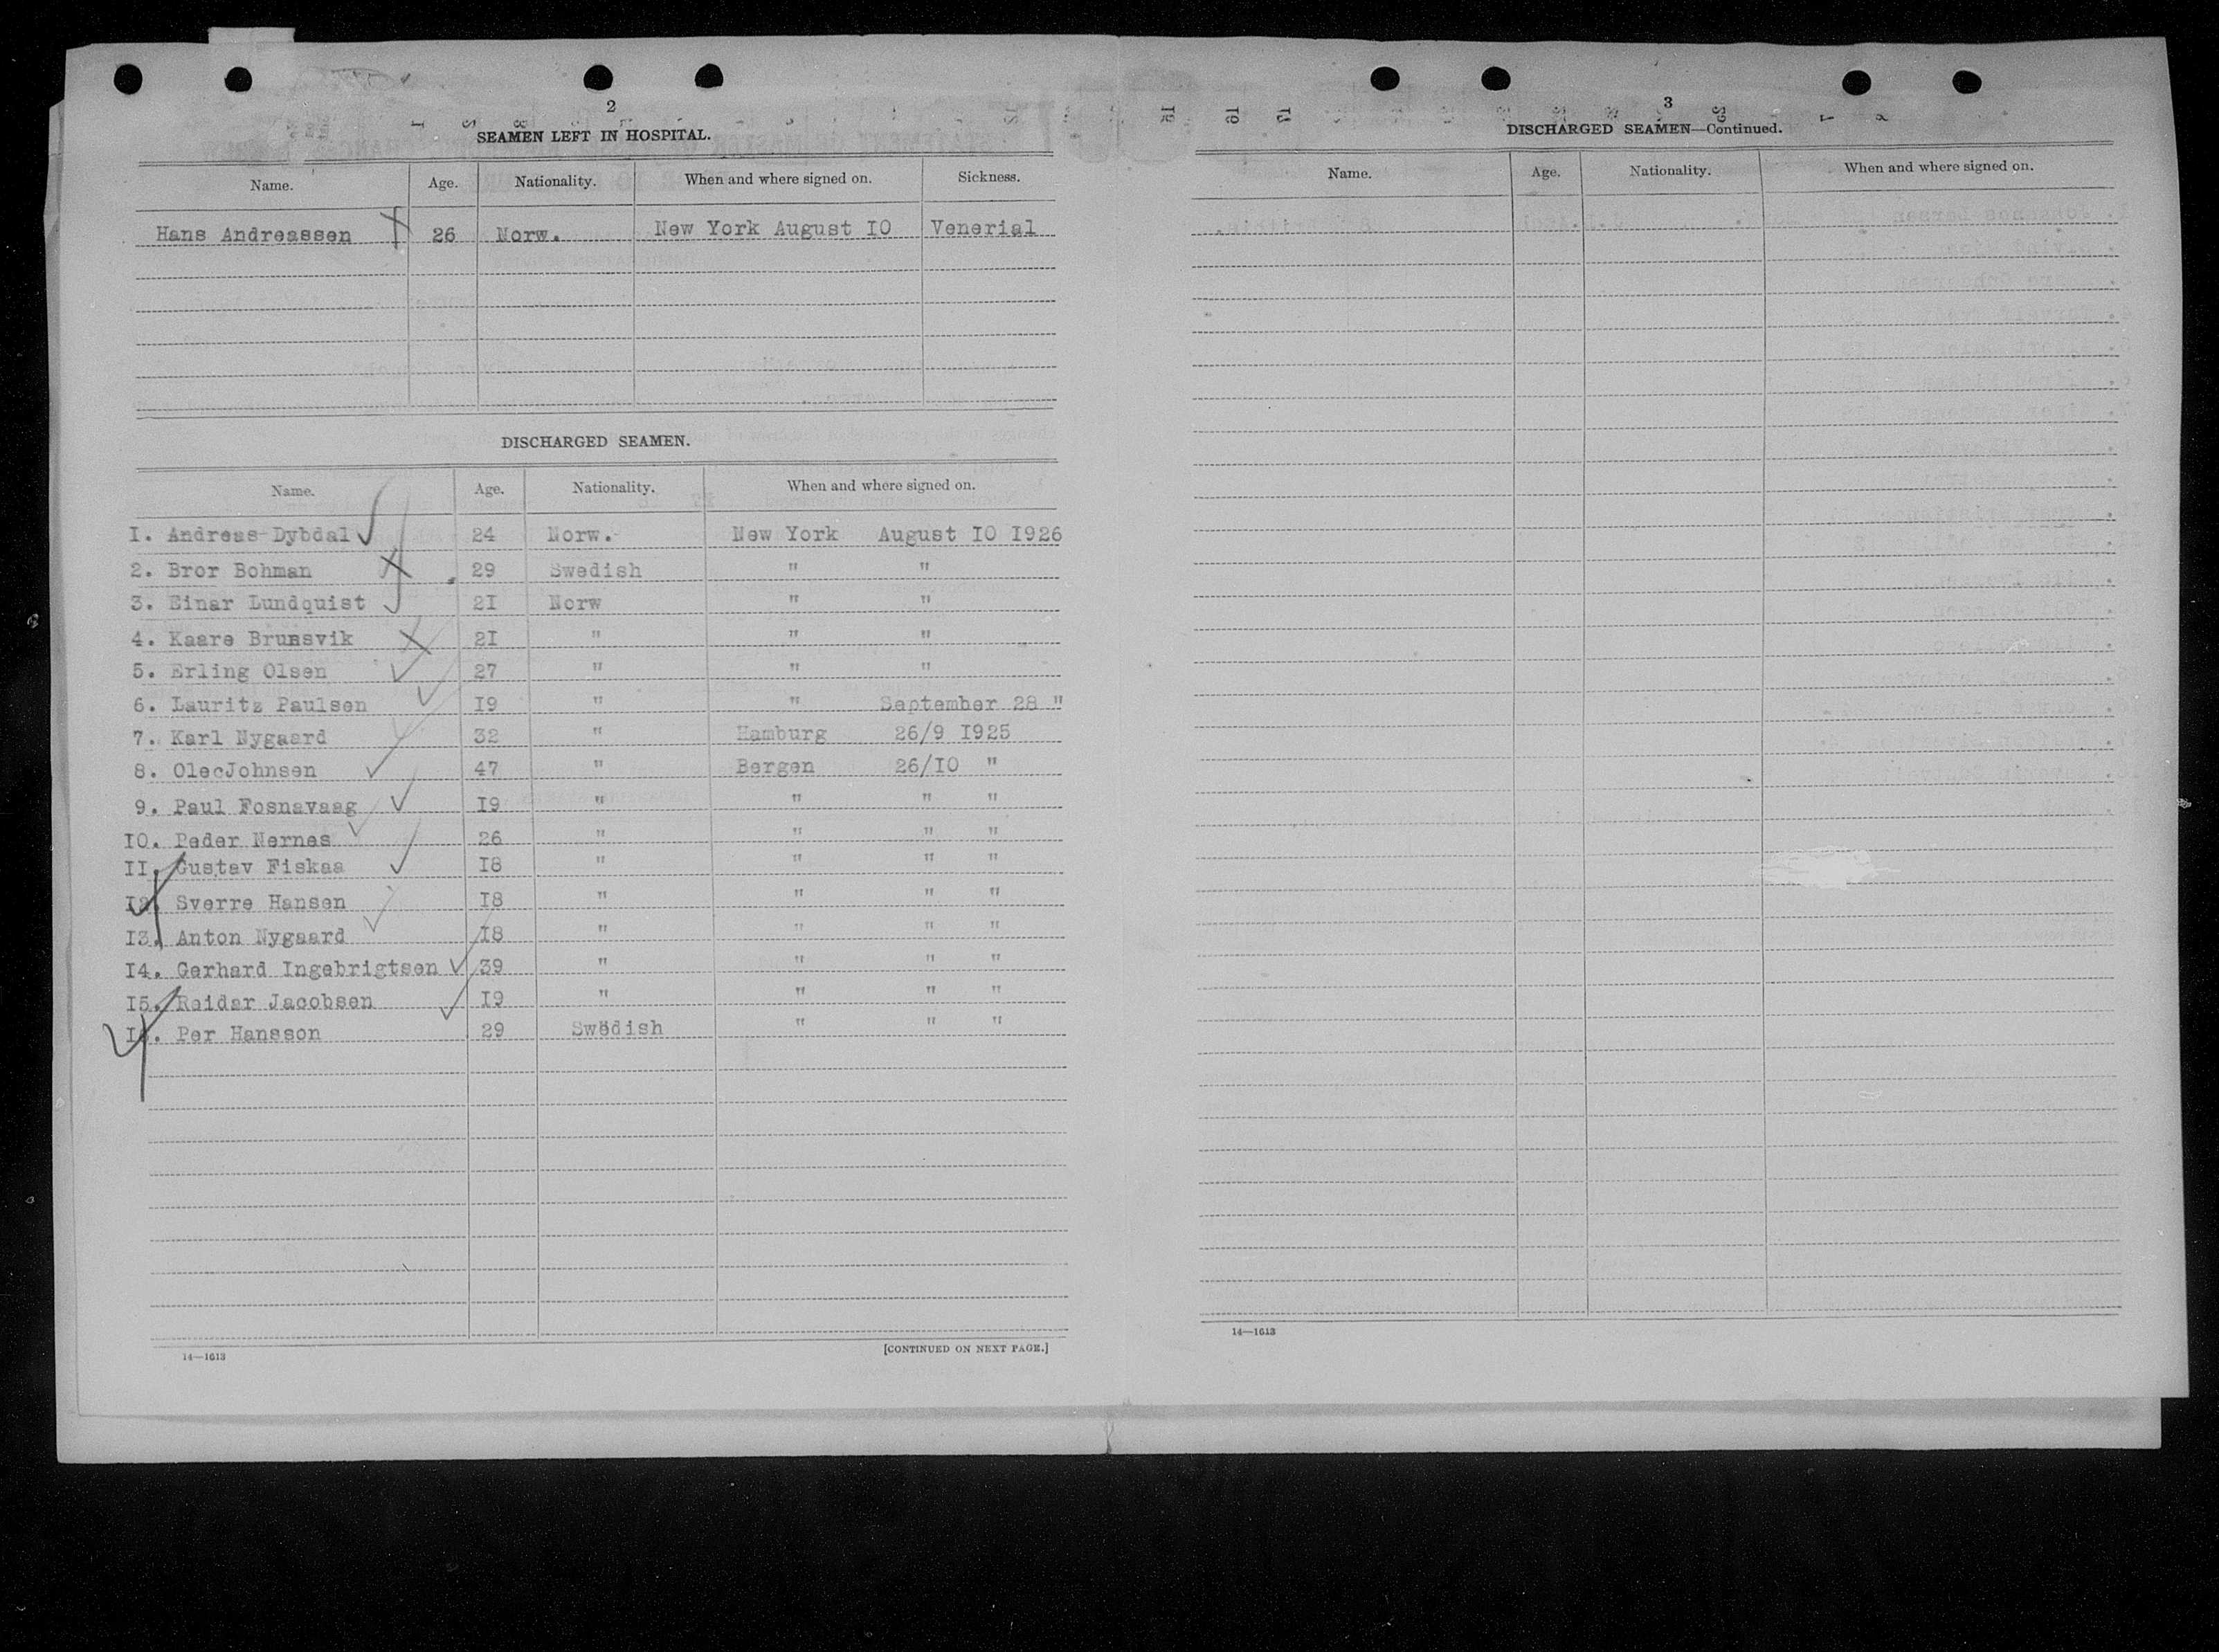 2
SEAMEN LEFT IN HOSPITAL.
Name. Age. Nationality. When and where signed on. Sickness.
Hans Andreassen 26 Norw. New York August I0 Venerial
DISCHARGED SEAMEN.
Name. Age. Nationality. When and where signed on.
I. Andreas Dybdal 24 Norw. New York August I0 I926
2. Bror Bohman 29 Swedish " "
3. Einar Lundquist 2I Norw " "
4. Kaare Brunsvik 2I " " "
5. Erling Olsen 27 " " "
6. Lauritz Paulsen I9 " " September 28 "
7. Karl Nygaard 32 " Hamburg 26/9 I925
8. OlecJohnsen 47 " Bergen 26/I0 "
9. Paul Fosnavaag I9 " " " "
I0. Peder Nernes 26 " " " "
II. Gustav Fiskaa I8 " " " "
I2. Sverre Hansen I8 " " " "
I3. Anton Nygaard I8 " " " "
I4. Gerhard Ingebrigtsen 39 " " " "
I5. Reidar Jacobsen I9 " " " "
I6. Per Hansson 29 Swedish " " "
14—1613
[CONTINUED ON NEXT PAGE.]
3
DISCHARGED SEAMEN—Continued.
Name. Age. Nationality. When and where signed on.
14—1613